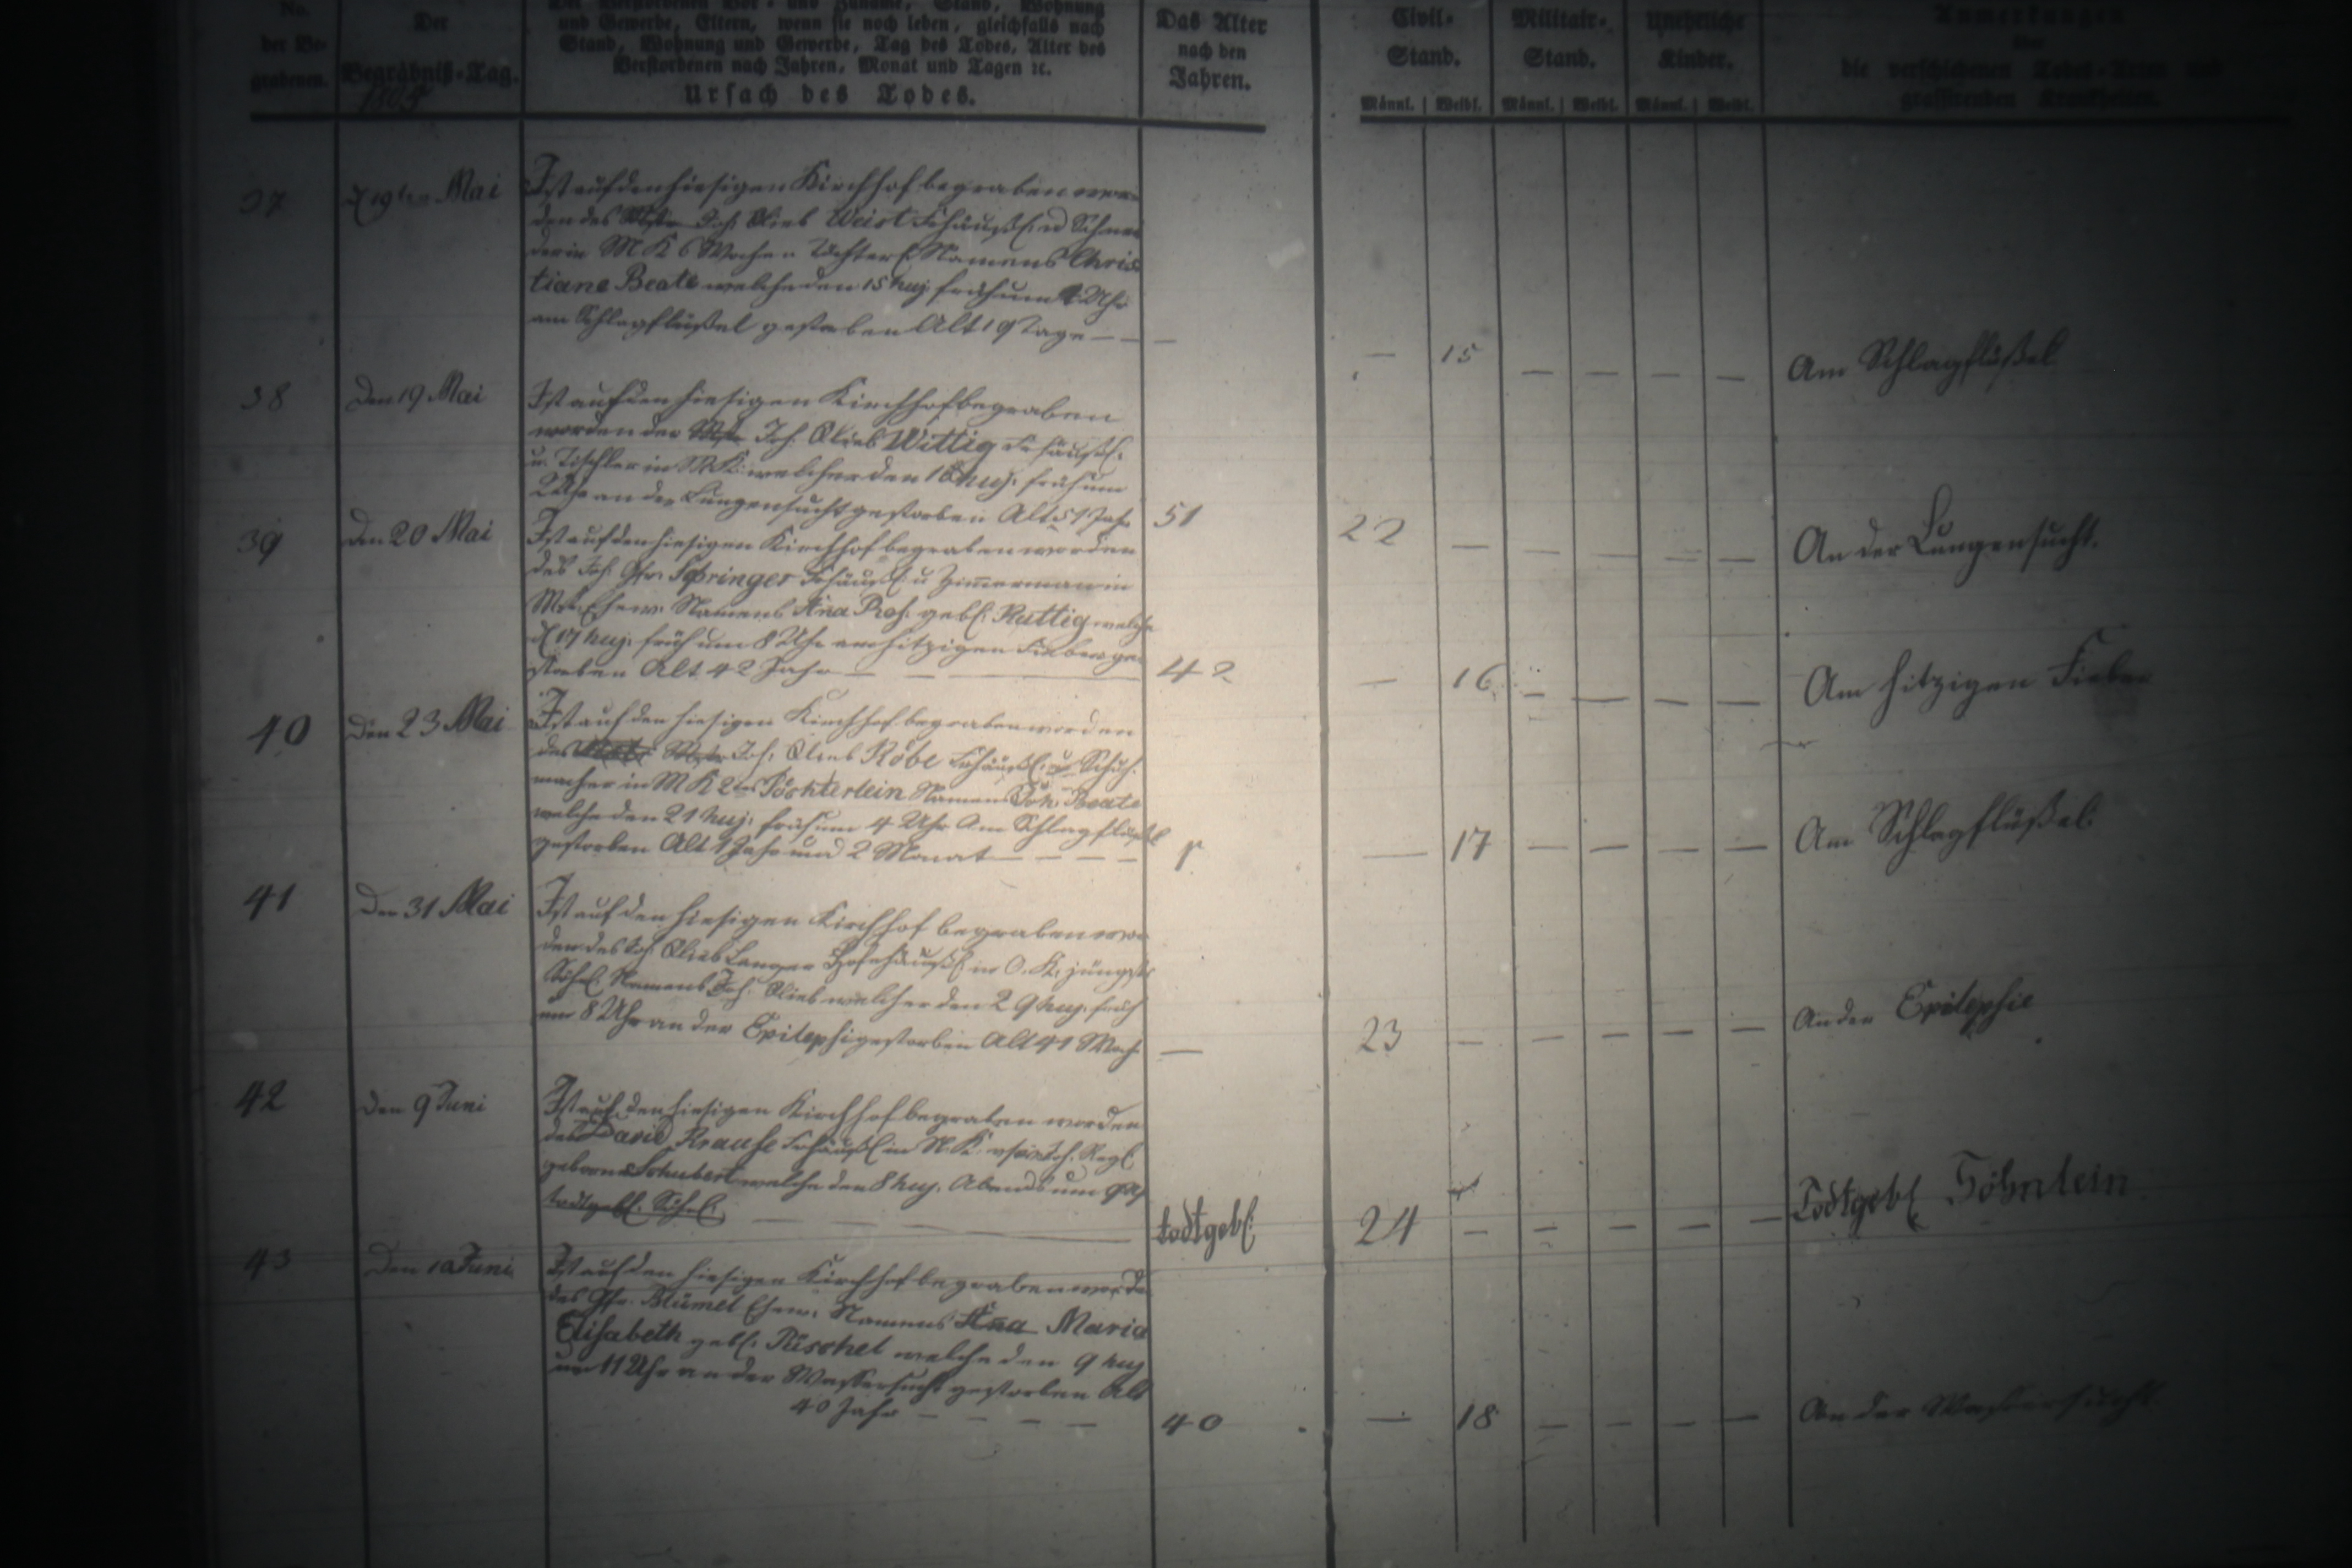 No. der Be- grabenen.
Der Begräbniß-Tag.
Der Verstorbenen Vor- und Zuname, Stand, Wohnung
und Gewerbe, Eltern, wenn sie noch leben, gleichfalls nach
Stand, Wohnung und Gewerbe, Tag des Todes, Alter des
Verstorbenen nach Jahren, Monat und Tagen ꝛc.
Ursach des Todes.
Das Alter nach den Jahren.
Civil- Stand. Männl. Weibl.
Militair- Stand. Männl. Weibl.
Uneheliche Kinder. Männl. Weibl.
Anmerkungen
über
die verschiedenen Todes-Arten und
grassirenden Krankheiten.
37 Mai
Ist auf den hiesigen Kirchhof begraben wor-
den des Mstr Joh. Glieb Weist Frhäusl. u Schnei
der in MK 6 Wochen Töchterl. Namens Chris
tiane Beate welche den 15 huj. früh um Uhr
am Schlagflüßel gestorben Alt 19 Tage — — —
— 15 — — — — Am Schlagflüßel
38 Den 19 Mai
Ist auf den hiesigen Kirchhof begraben
worden der Mstr Joh. Glieb Wittig Frhäusl.
u. Tischler in MK. welcher den 16 huj. früh um
2 Uhr an der Lungensucht gestorben Alt 51 Jahr
51 22 — — — — — An der Lungensucht.
39 Den 20 Mai
Ist auf den hiesigen Kirchhof begraben worden
des Joh. Gfr. Springer Frhäusl. u Zimmerman in
MK. Ehew. Namens Ana Ros. gebl. Ruttig welche
d 17 huj. früh um 8 Uhr am hitzigen Fieber ge-
storben Alt 42 Jahr — — —
42 — 16 — — — — Am hitzigen Fieber
40 Den 23 Mai
Ist auf den hiesigen Kirchhof begraben worden
des Joh. Glieb Röbe Frhäusl. u Schuh-
macher in MK 2tes Töchterlein Namens Joh. Beate
welche den 21 huj. früh um 4 Uhr Am Schlagflüßel
gestorben Alt 1 Jahr und 2 Monat — — — —
1 — 17 — — — — Am Schlagflüßel
41 Den 31 Mai
Ist auf den hiesigen Kirchhof begraben wor
den des Joh. Glieb Langer Hofehäusl. in O. K. jüngstes
Söhnl. Namens Joh. Glieb welcher den 29 huj. früh
um 8 Uhr an der Epilepsi gestorben Alt 41 Woch.
— 23 — — — — — An der Epilepsie
42 Den 9 Juni
Ist auf den hiesigen Kirchhof begraben worden
des David Krause Frhäusl. in N. K. Joh. Regl.
geborne Schubert welche den 8 huj. Abends um 9 Uhr
todtgebl. Söhnl.
todtgebl. 24 — — — — — Todtgebl. Söhnlein
43 Den 10 Juni
Ist auf den hiesigen Kirchhof begraben worde
des Gfr. Blümel Ehew. Namens Ana Maria
Elisabeth gebl. Püschel welche den 9 huj
um 11 Uhr an der Wassersucht gestorben Alt
40 Jahr — — — —
40 — 18 — — — — An der Wassersucht